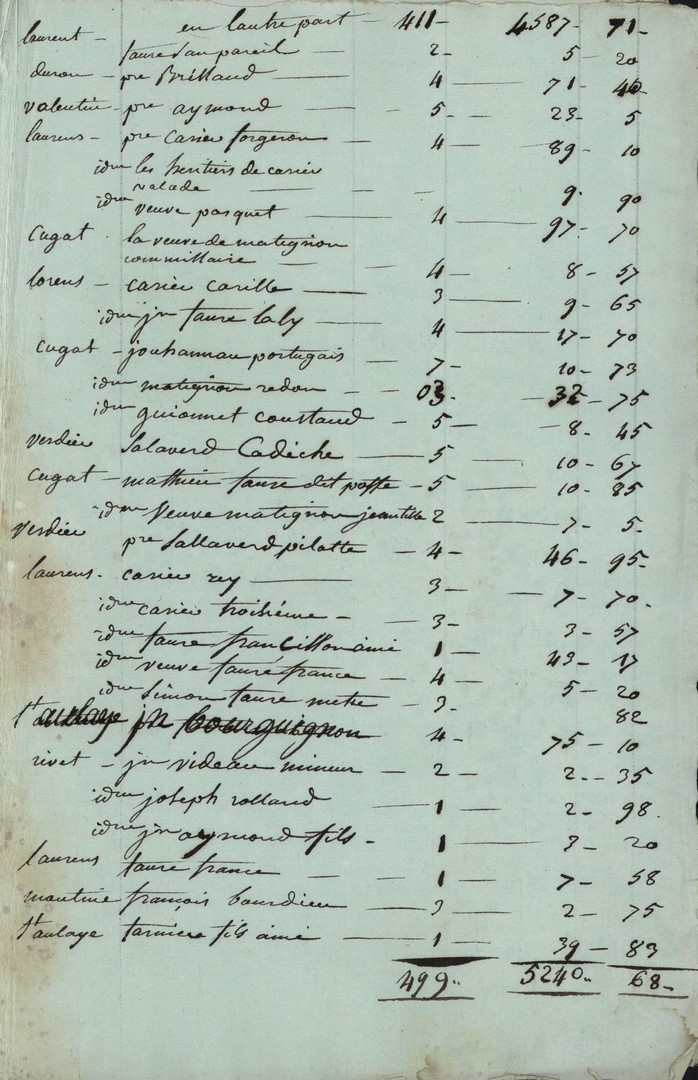 en lautre part — 411 — 4587 — 71 —
laurent — faure dau pareil — 2 — 5 — 20
duron — pre Brillaud — 4 — 71 — 40 —
valentin — pre aymond — 5 — 23 — 5
laurens — pre casier forgeron — 4 — 89 — 10
idem les heritiers de casier
valade — 9 — 90
idem veuve pasquet — 4 — 97 — 70
Cugat la veuve de matignon
commissaire — 4 — 8 — 57
lorens — casier carille — 3 — 9 — 65
idem jn faure laly — 4 — 17 — 70
cugat — jouhannau portugais — 7 — 10 — 73
idem matignon redon — 03 — 32 — 75
idem guionnet coustaud — 5 — 8 — 45
verdier Salaverd Cadèche — 5 — 10 — 67
cugat — mathieu faure dit poste — 5 — 10 — 85
idem veuve matignon 2 — 7 — 5 —
verdier pre Sallaverd pilotte — 4 — 46 — 95 —
laurens — casier rey — 3 — 7 — 70 —
idem casier troisiéme — 3 — 3 — 57
idem faure francillon ainé 1 — 49 — 17
idem veuve faure france — 4
idem Simon faure metre — 3 — 5 — 20
82
st aulaye jn bourguignon 4 — 75 — 10
rivet — jn videau mineur — 2 — 2 — 35
idem joseph rolland 1 — 2 — 98
idem jn aymond fils — 1 — 3 — 20
laurens faure france — 1 — 7 — 58
moutine françois bourdieu — 3 — 2 — 75
st aulaye tarniera fils ainé — 1 — 39 — 83
499 .. 5240 .. 68 —